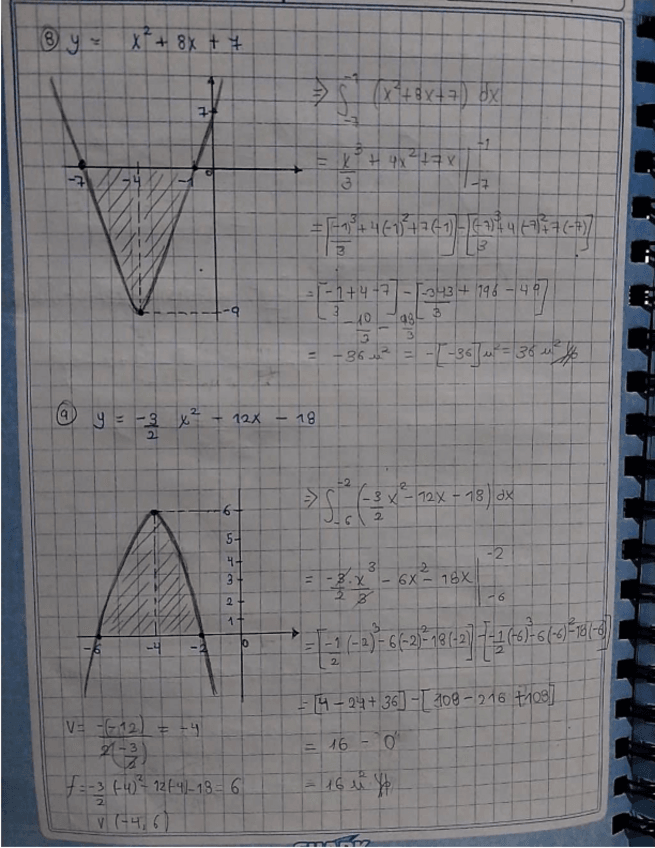 ⑧ y = x² + 8x + 7
7
-7 -4 -1 0
-9
⇒ ∫₋₇⁻¹ (x²+8x+7) dx
= x³/3 + 4x² + 7x |₋₇⁻¹
= [(-1)³/3 + 4(-1)² + 7(-1)] - [(-7)³/3 + 4(-7)² + 7(-7)]
= [-1/3 + 4 - 7] - [-343/3 + 196 - 49]
-10/3 - 98/3
= -36 u² = -[-36] u² = 36 u²
⑨ y = -3/2 x² - 12x - 18
6
5
4
3
2
1
-6 -4 -2 0
⇒ ∫₋₆⁻² (-3/2 x² - 12x - 18) dx
= -3/2 · x³/3 - 6x² - 18x |₋₆⁻²
= [-1/2 (-2)³ - 6(-2)² - 18(-2)] - [-1/2 (-6)³ - 6(-6)² - 18(-6)]
= [4 - 24 + 36] - [108 - 216 + 108]
= 16 - 0
= 16 u²
V = -(-12)/2(-3/2) = -4
f = -3/2 (-4)² - 12(-4) - 18 = 6
V (-4, 6)